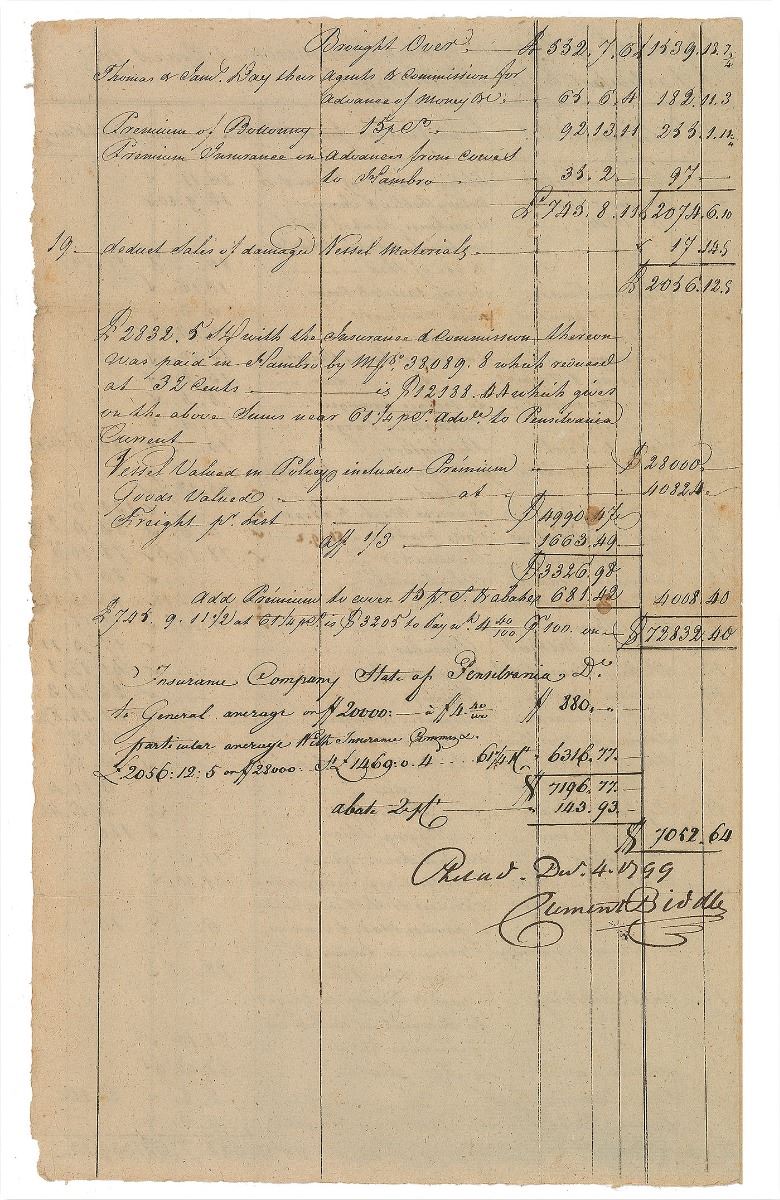 Brought Over £ 552.7.6½ 1539.18.2¼
Thomas & Saml. Kay their Agents & Commission for
Advance of Money &c. 65.6.4 182.11.3
Premium of Bottomry 15 pCt. 92.13.11 255.1.11
Premium Insurance on Advances from Cowes
to Hambro 35.2 97
£ 745.8.11 £ 2074.6.10
19. deduct Sales of damaged Vessel Materials 17.14.5
£ 2056.12.5
£ 2832.5 with the Insurance & Commission thereon
was paid in Hambro by Mfs. 38,089.8 which reduced
at 32 Cents is $ 12188.44 which gives
on the above Sums near 61¼ pCt. Adve. to Pensilvania
Current
Vessel Valued in Policy included Premium $ 28000
Goods Valued at 40824
Freight pr. List $ 4990.47
off 1/3 1663.49
$ 3326.98
add Premium to cover 15 pr. Ct. & abatet 681.42 4008.40
£ 745.9.11½ at 61¼ pCt is $ 3205 to Pay wh. 4 40/100 $ 100. on $ 72832.40
Insurance Company State of Pensilvania Dr.
to General average on $ 20000 à $ 4 40/100 $ 880
particular average With Insurance Commns.
£ 2056:12:5 on $ 28000 £ 1469:0.4 61¼ 6316.77
$ 7196.77
abate 2 pCt 143.93
$ 7052.64
Philad. Decr. 4. 1799
Clement Biddle